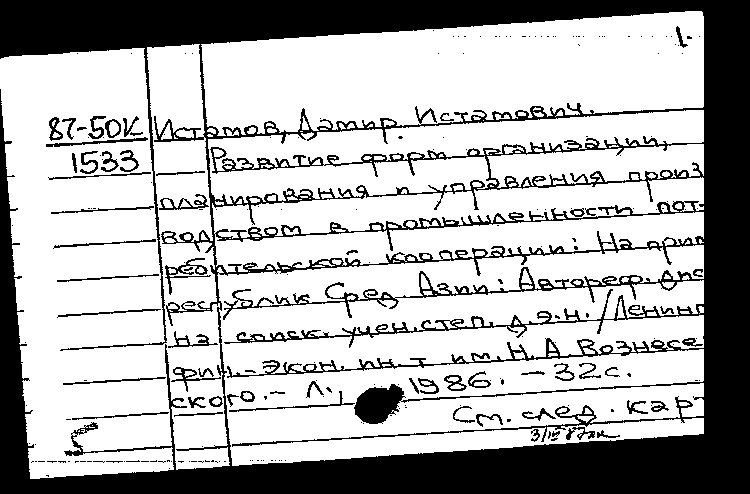 1.
87-50К Истамов, Дамир Истамович.
1533 Развитие форм организации,
планирования и управления произ
водством в промышленности пот-
ребительской кооперации: На прим
республик Сред. Азии: Автореф. дис
на соиск. учен. степ. д.э.н. / Ленинг
фин.-экон. ин-т им. Н. А. Вознесе
ского. - Л., 1986. - 32с.
См. след. карт